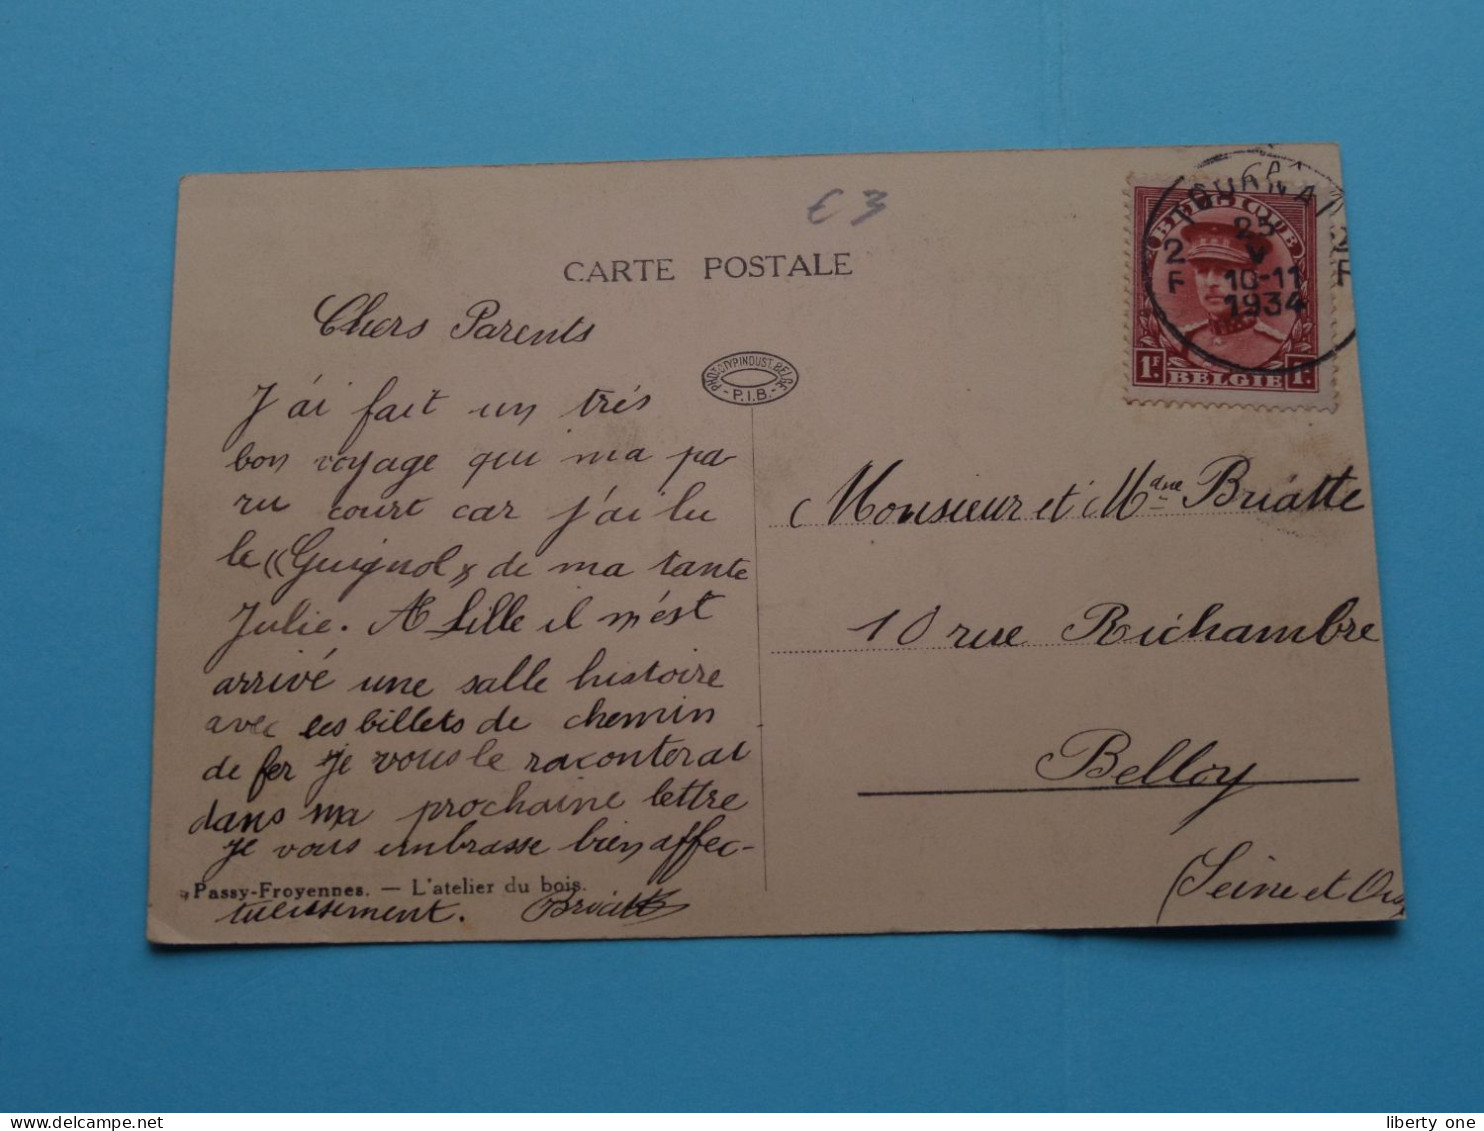 €3
CARTE POSTALE
Chers Parents
J'ai fait un trés
bon voyage qui ma pa-
ru court car j'ai lu
le «Guignol» de ma tante
Julie. A Lille il m'est
arrivé une salle histoire
avec les billets de chemin
de fer je vous le raconterai
dans ma prochaine lettre
je vous embrasse bien affec-
Passy-Froyennes. — L'atelier du bois.
tueusement. Briatte
PHOTOTYP.INDUST.BELGE
- P.I.B. -
BELGIQUE
1F BELGIE 1F
TOURNAI
2F 2F
25
V
10-11
1934
Monsieur et Mdme Briatte
10 rue Richambre
Belloy
(Seine et Oise
liberty one